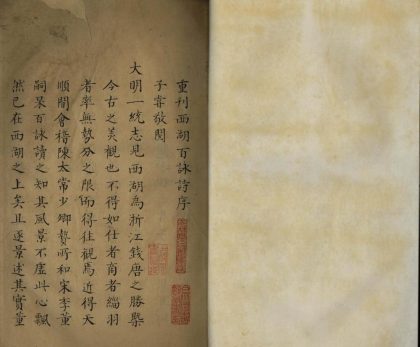 重刊西湖百詠詩序
子靠敬閱
大明一統志見西湖為浙江錢唐之勝槩
今古之美觀也不得如仕者商者緇羽
者率無勢分之限而得往觀焉近得天
順間會稽陳太常少卿贄所和宋李董
嗣杲百詠讀之知其風景不虛此心飄
然已在西湖之上矣且逐景述其實董